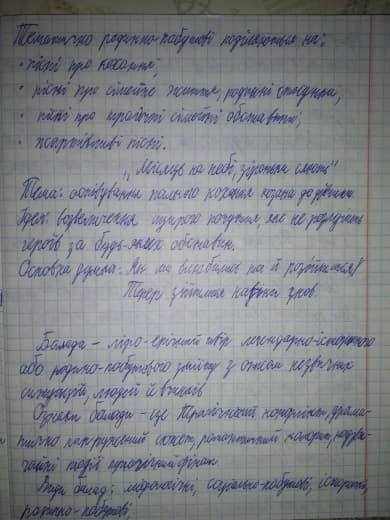 Тематично родинно-побутові поділяються на:
• пісні про кохання;
• пісні про сімейне життя, родинні стосунки;
• пісні про трагічні сімейні обставини;
• жартівливі пісні.
„Місяць на небі, зіроньки сяють"
Тема: оспівування палкого кохання козака до дівчини.
Ідея: возвеличення щирого почуття, яке не розлучить
героїв за будь-яких обставин.
Основна думка: Як ми влюбились та й розійшлися
Тепер зійшлися навіки знов.
Балада – ліро-епічний твір легендарно-історичного
або родинно-побутового змісту з описом незвичних
ситуацій, людей й вчинків
Ознаки балади – це трагічний конфлікт, драма-
тично напружений сюжет, романтичний колорит, надзви-
чайні події трагічний фінал.
Види балад: міфологічні, соціально-побутові, історичні,
родинно-побутові,